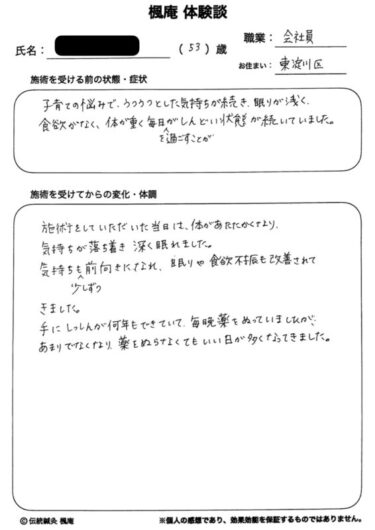 楓庵 体験談
氏名: (53) 歳
職業: 会社員
お住まい: 東淀川区
施術を受ける前の状態・症状
子育ての悩みで、うつうつとした気持ちが続き、眠りが浅く、
食欲がなく、体が重く毎日がしんどい状態が続いていました。
を過ごすことが
施術を受けてからの変化・体調
施術をしていただいた当日は、体があたたかくなり、
気持ちが落ち着き 深く眠れました。
気持ちも前向きになれ、眠りや食欲不振も改善されて
少しずつ
きました。
手にしっしんが何年もできていて、毎晩薬をぬっていましたが、
あまりでなくなり、薬をぬらなくてもいい日が多くなってきました。
© 伝統鍼灸 楓庵
※個人の感想であり、効果効能を保証するものではありません。